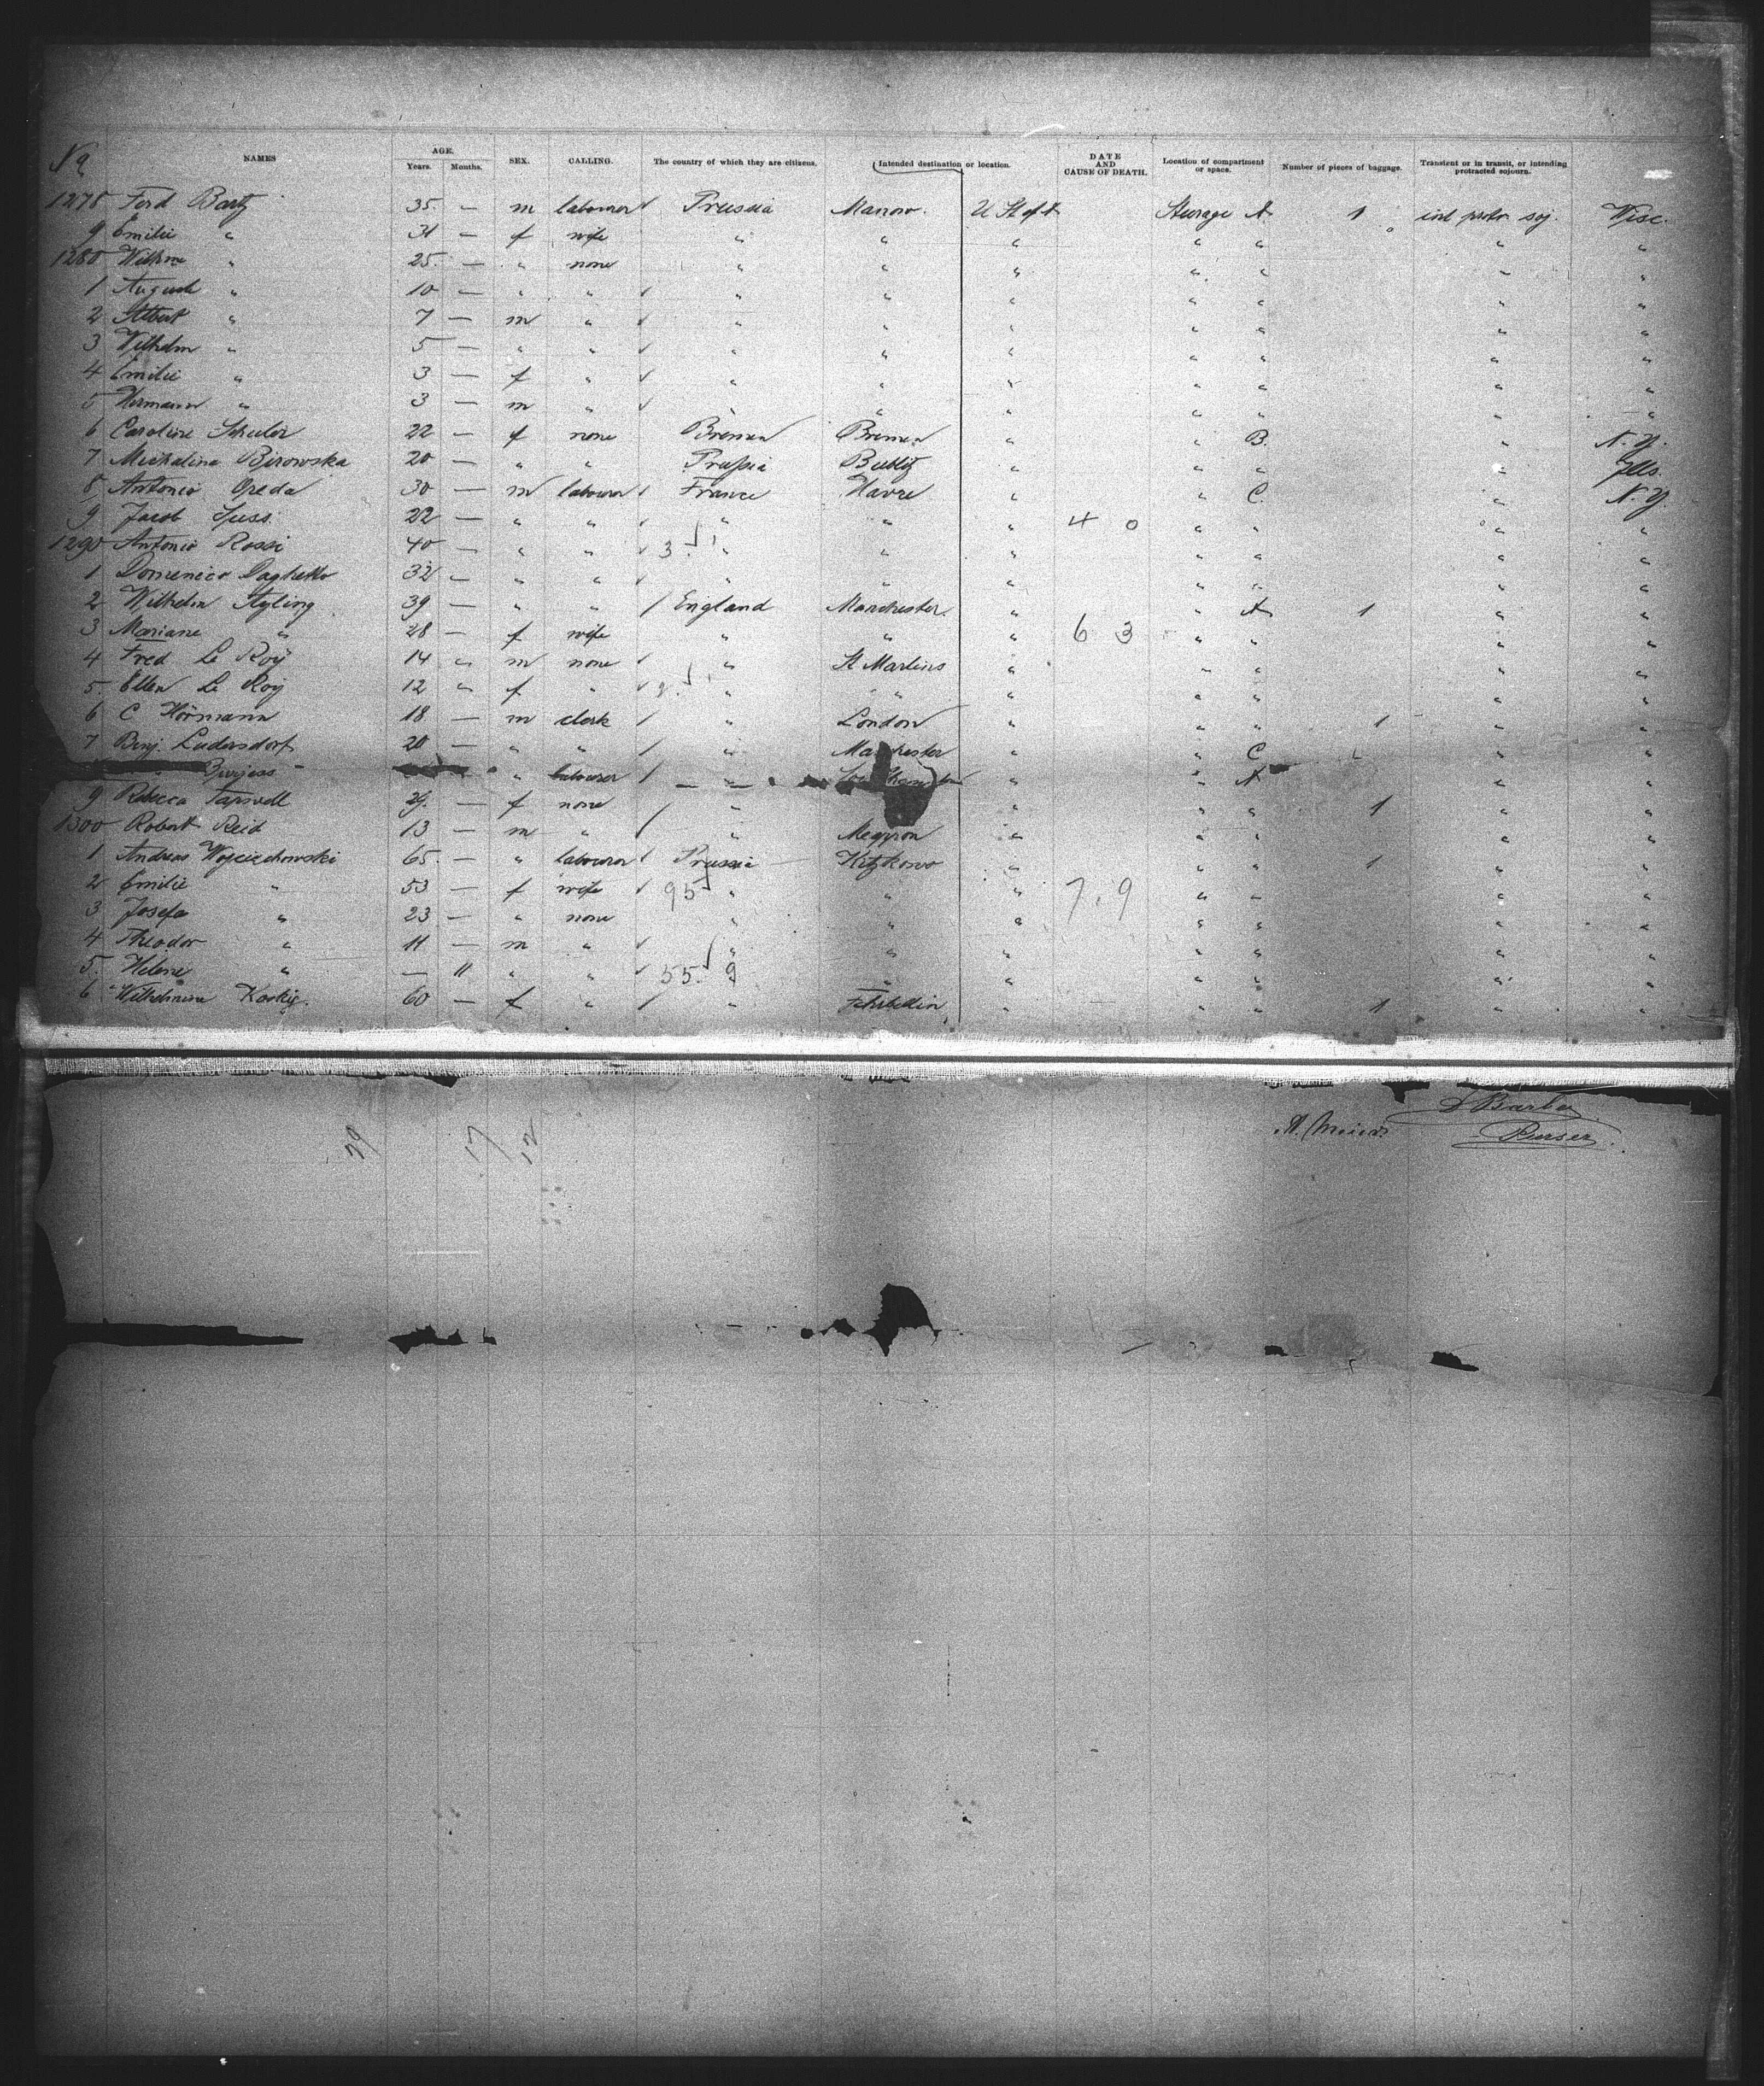 No
NAMES AGE. Years. Months. SEX. CALLING. The country of which they are citizens. Intended destination or location. DATE AND CAUSE OF DEATH. Location of compartment or space. Number of pieces of baggage. Transient or in transit, or intending protracted sojourn.
1278 Ferd Bartz 35 — m labourer Prussia Manow. U St of A Steerage A 1 int protr soj. Wisc.
9 Emilie " 31 — f wife " " " " " " "
1280 Wilhne " 25 — " none " " " " " " "
1 August " 10 — " " " " " " " " "
2 Albert " 7 — m " " " " " " " "
3 Wilhelm " 5 — " " " " " " " " "
4 Emilie " 3 — f " " " " " " " "
5 Hermann " 3 — m " " " " " " " "
6 Caroline Schuler 22 — f none Bremen Bremen " " B. " N. Y.
7 Michalina Birowska 20 — " " Prussia Bublitz " " " " Ills.
8 Antonio Oreda 30 — m labourer France Havre " " C. " N. Y.
9 Jacob 22 — " " " " " 4 0 " " " "
1290 Antonio Rossi 40 — " " 3 " " " " " " "
1 Domenico 32 — " " " " " " " " "
2 Wilhelm Styling 39 — " " England Manchester. " " A 1 " "
3 Mariane " 28 — f wife " " " 6 3 " " " "
4 Fred Le Roy 14 " m none " St Martins " " " " "
5 Ellen Le Roy 12 " f " " " " " " " "
6 C Hörmann 18 — m clerk " London " " " 1 " "
7 Benj. Ludersdorf 20 — " " " Manchester " " C 1 " "
Burgess " labourer " " " A " "
9 Rebecca Tapwell 29. — f none " " " " 1 " "
1300 Robert Reid 13 — m " " " " " " "
1 Andreas Wojciechowski 65 — " labourer Prussia Kitzkowo " " " 1 " "
2 Emilie " 53 — f wife 95 " " " 7.9 " " " "
3 Josefa " 23 — " none " " " " " " "
4 Theodor " 11 — m " " " " " " " "
5 Helene " — 11 " " 55. 9 " " " " " "
6 Wilhelmine 60 — f " " Fehrbellin " " " 1 " "
D Barle
Purser.
29 17 12